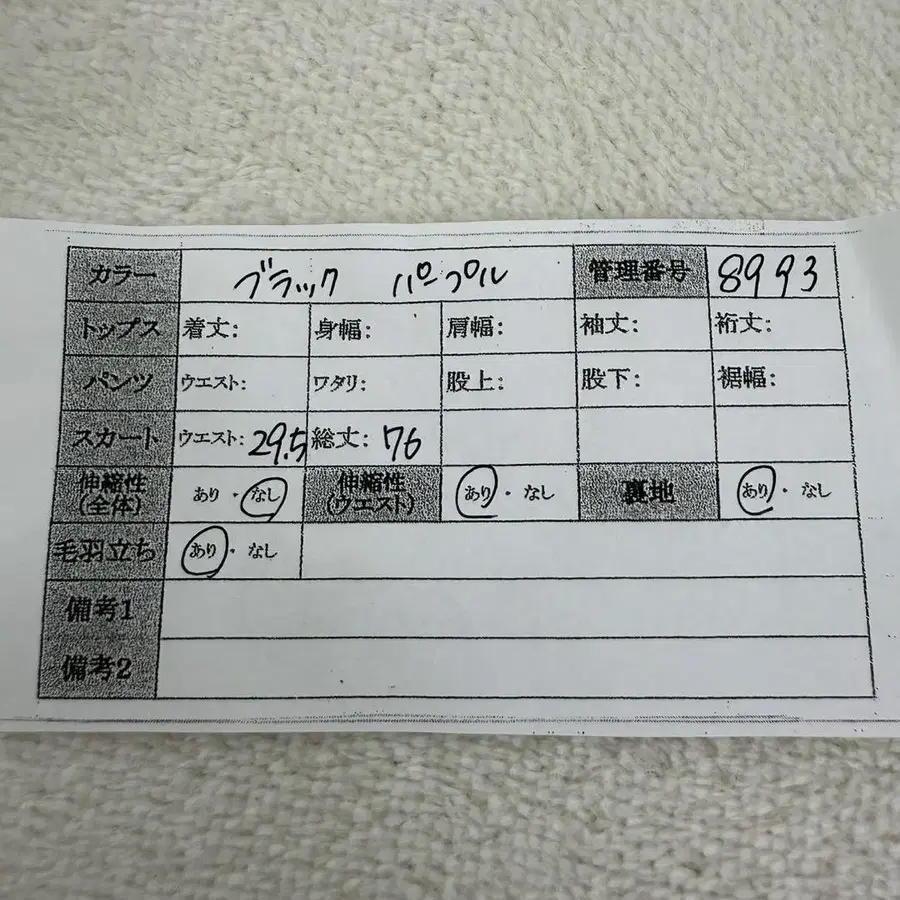 カラー ブラック パープル 管理番号 8993
トップス 着丈: 身幅: 肩幅: 袖丈: 裄丈:
パンツ ウエスト: ワタリ: 股上: 股下: 裾幅:
スカート ウエスト: 29.5 総丈: 76
伸縮性(全体) あり・なし 伸縮性(ウエスト) あり・なし 裏地 あり・なし
毛羽立ち あり・なし
備考1
備考2